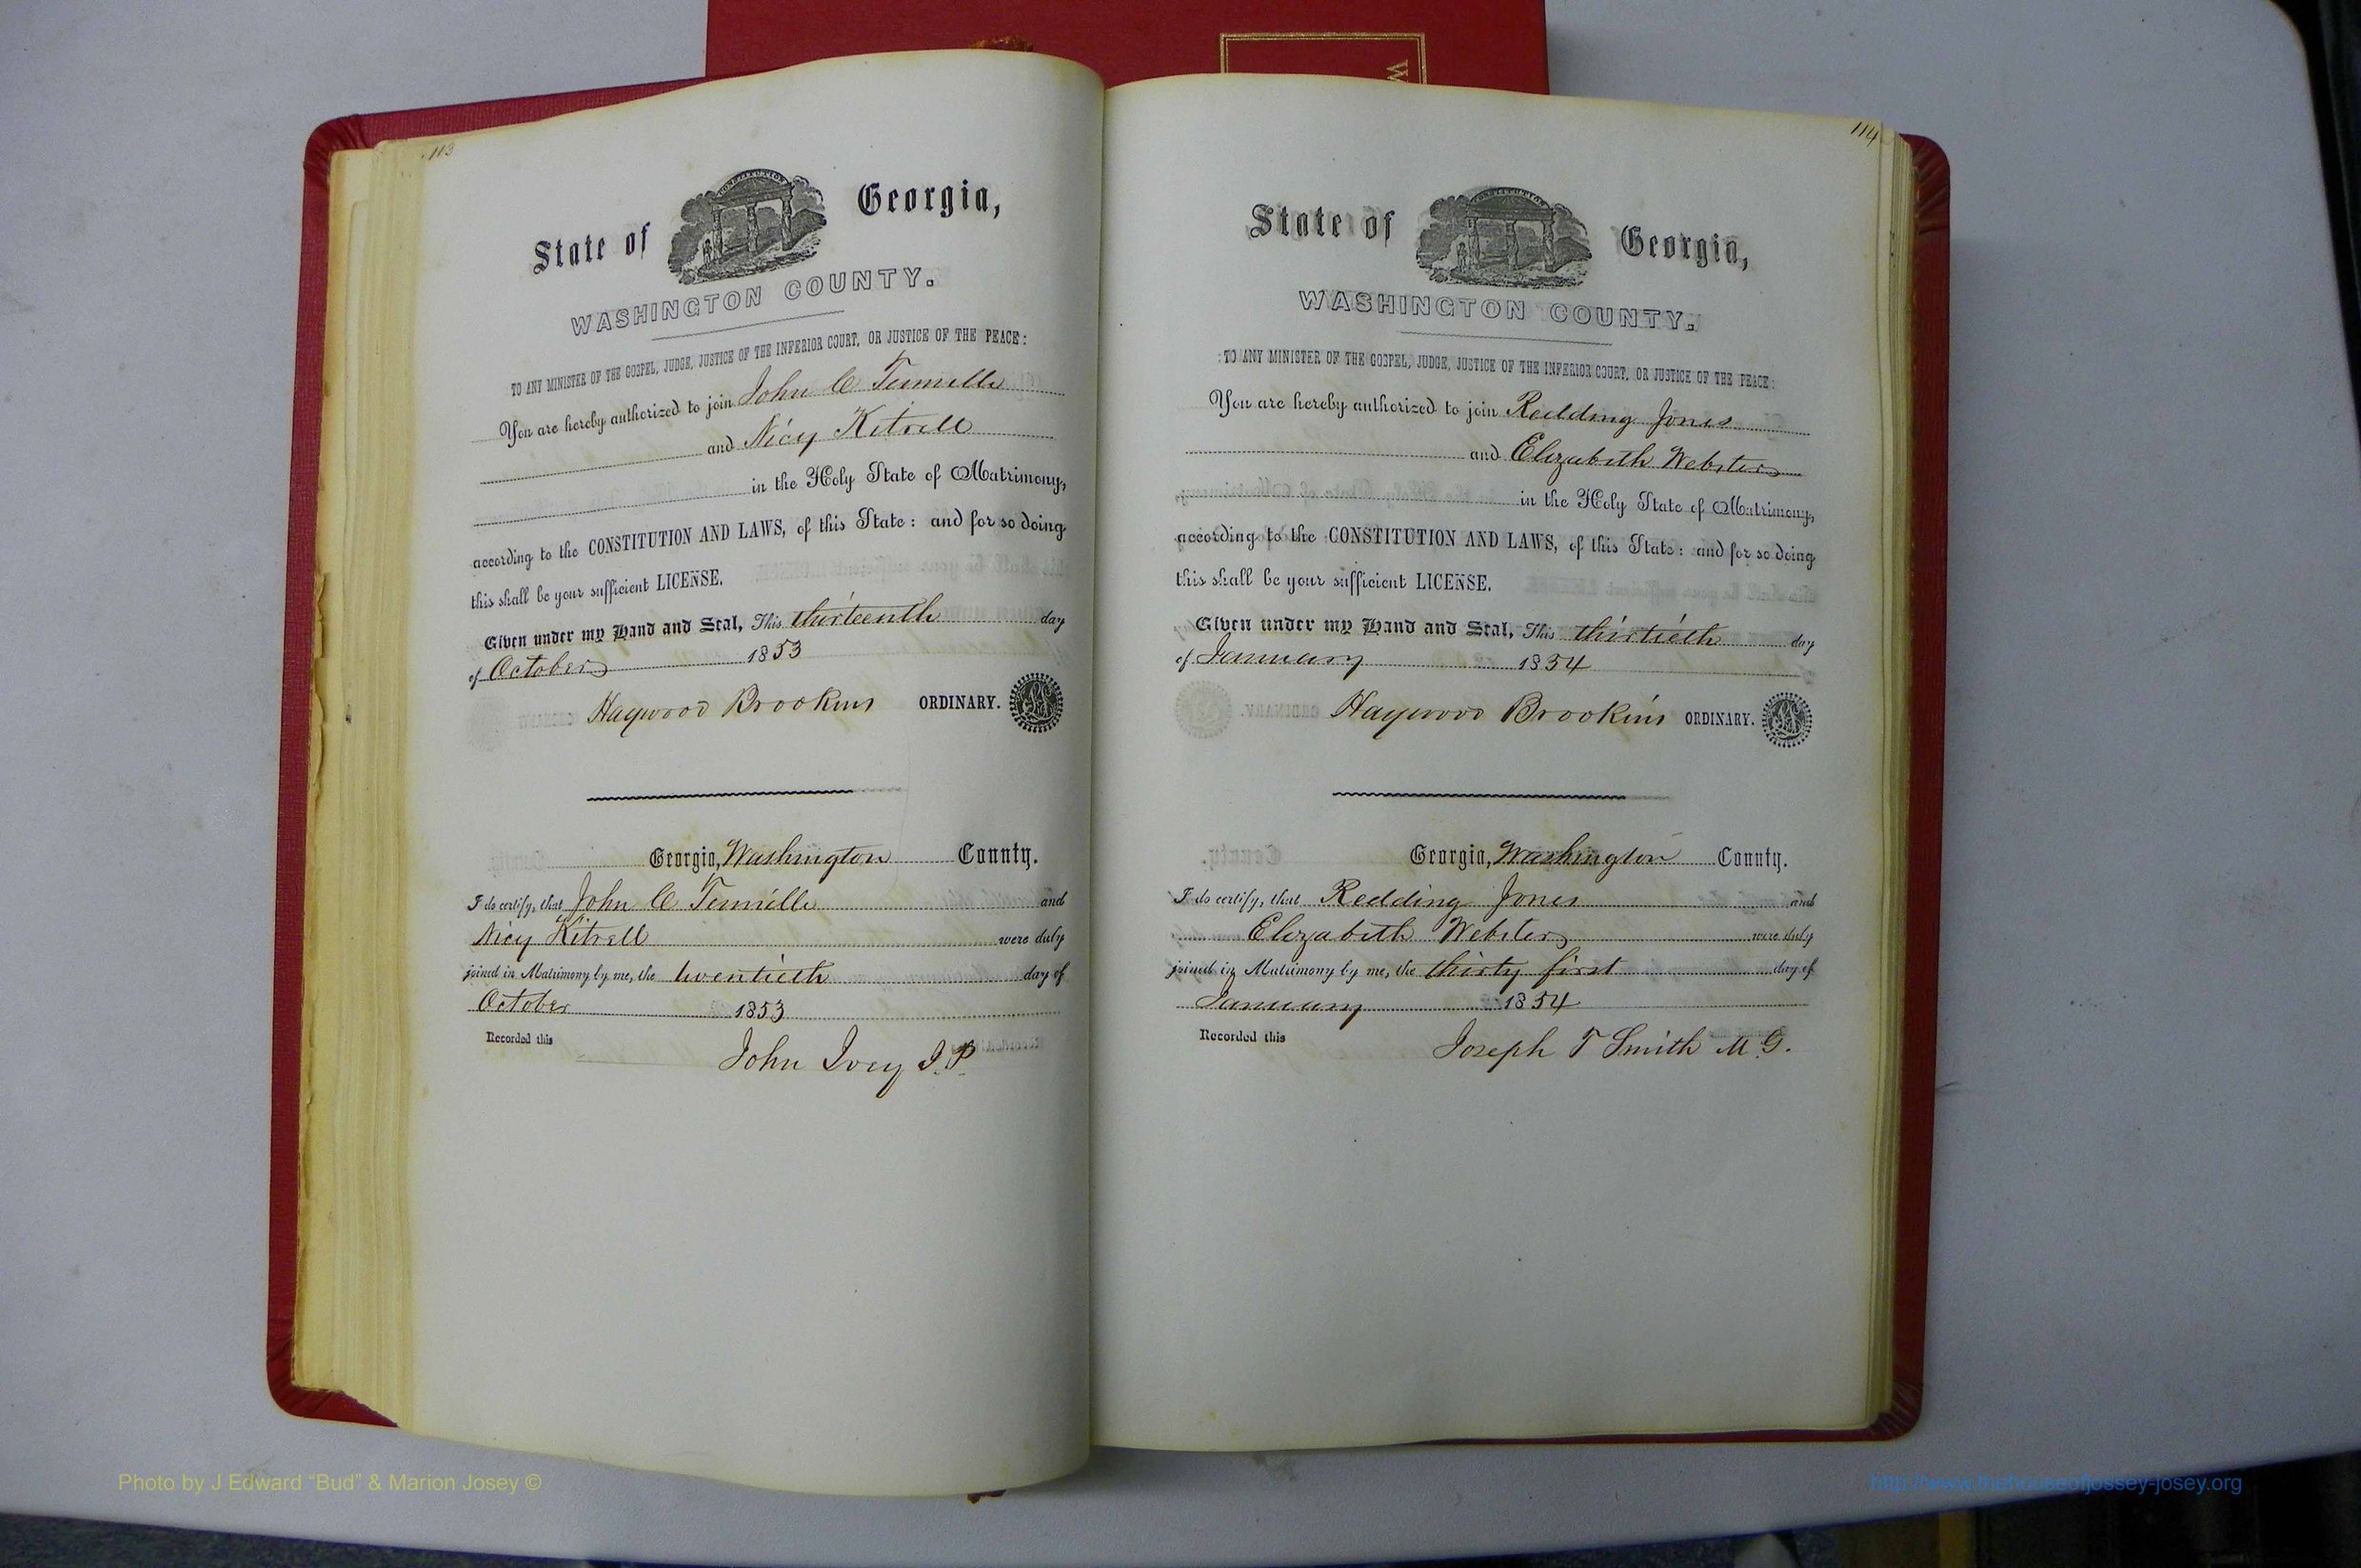 W
113
CONSTITUTION
State of Georgia,
WASHINGTON COUNTY.
TO ANY MINISTER OF THE GOSPEL, JUDGE, JUSTICE OF THE INFERIOR COURT, OR JUSTICE OF THE PEACE:
You are hereby authorized to join John C Tennille
and Nicy Kitrell
in the Holy State of Matrimony,
according to the CONSTITUTION AND LAWS, of this State: and for so doing
this shall be your sufficient LICENSE.
Given under my Hand and Seal, This thirteenth day
of October 1853
Haywood Brookins ORDINARY.
Georgia, Washington County.
I do certify, that John C Tennille and
Nicy Kitrell were duly
joined in Matrimony by me, the twentieth day of
October 1853
Recorded this
John Ivey J.P.
114
CONSTITUTION
State of Georgia,
WASHINGTON COUNTY.
TO ANY MINISTER OF THE GOSPEL, JUDGE, JUSTICE OF THE INFERIOR COURT, OR JUSTICE OF THE PEACE:
You are hereby authorized to join Redding Jones
and Elizabeth Webster
in the Holy State of Matrimony,
according to the CONSTITUTION AND LAWS, of this State: and for so doing
this shall be your sufficient LICENSE.
Given under my Hand and Seal, This thirtieth day
of January 1854
Haywood Brookins ORDINARY.
Georgia, Washington County.
I do certify, that Redding Jones and
Elizabeth Webster were duly
joined in Matrimony by me, the thirty first day of
January 1854
Recorded this
Joseph T Smith M.G.
Photo by J Edward “Bud” & Marion Josey ©
http://www.thehouseofjossey-josey.org